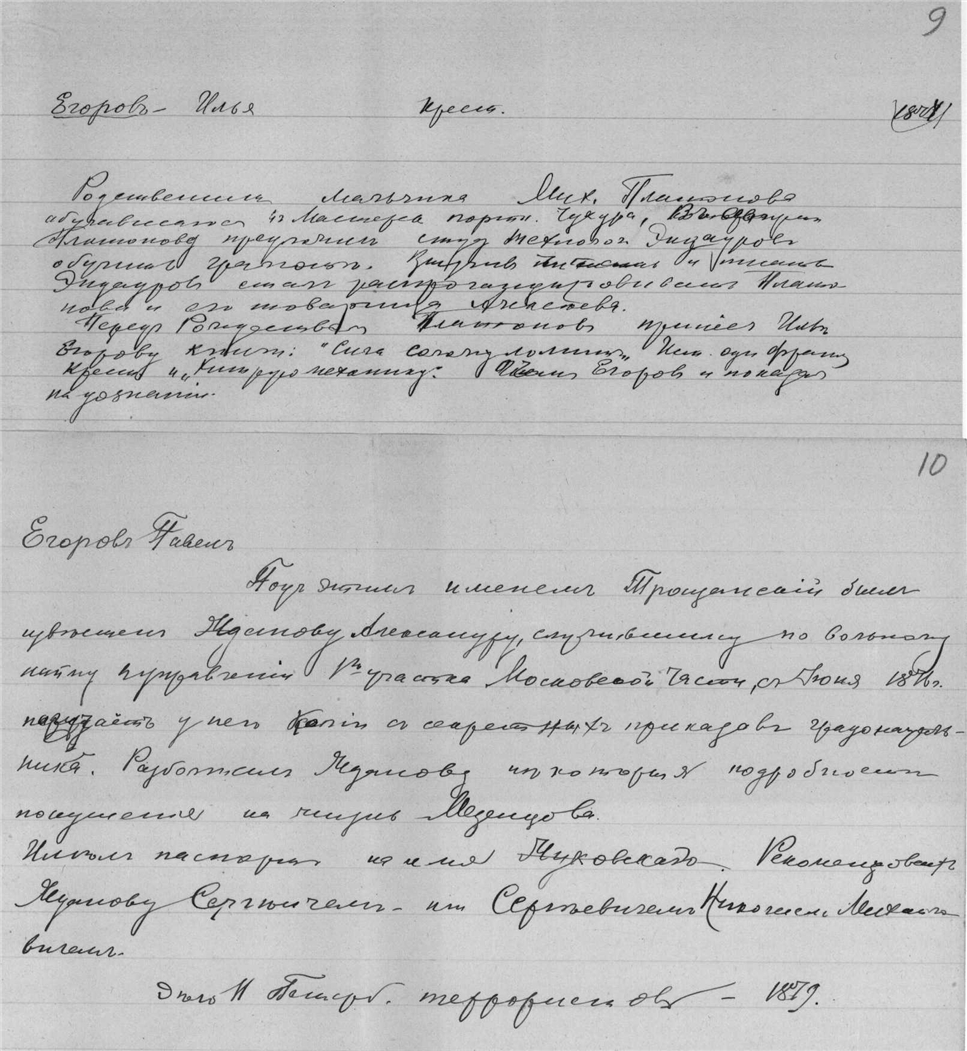 9
Егоровъ – Илья крест.
Родственники мальчика Мих. Платонова
обучавшагося у мастера портн. Чухура,
Платонова предложили студ. технологу Эндаурову
обучить грамотѣ. и писать
Эндауровъ сталъ распропагандировывать Плато-
нова и его товарища
Передъ Рождествомъ Платоновъ принесъ Ильѣ
Егорову книги: "Сила солому ломитъ", Ист. одн. франц.
крест. и "Хитрую механику". Егоров и показал
на дознаніи.
10
Егоровъ Павелъ
Подъ этимъ именемъ Трощанскій былъ
извѣстенъ Жданову Александру, служившему по вольному
найму въ управленіи 1го участка Московской части, съ Іюня 1878 г.
у него копіи съ секретныхъ приказовъ градоначаль-
ника. Разболталъ Жданову нѣкоторыя подробности
покушенія на жизнь Мезенцова.
Имѣлъ паспортъ на имя Жуковскаго. Рекомендовалъ
Жданову Сергѣичемъ – или Сергѣевичемъ Николаемъ Михайло-
вичемъ.
Дѣло Петерб. террористовъ – 1879.